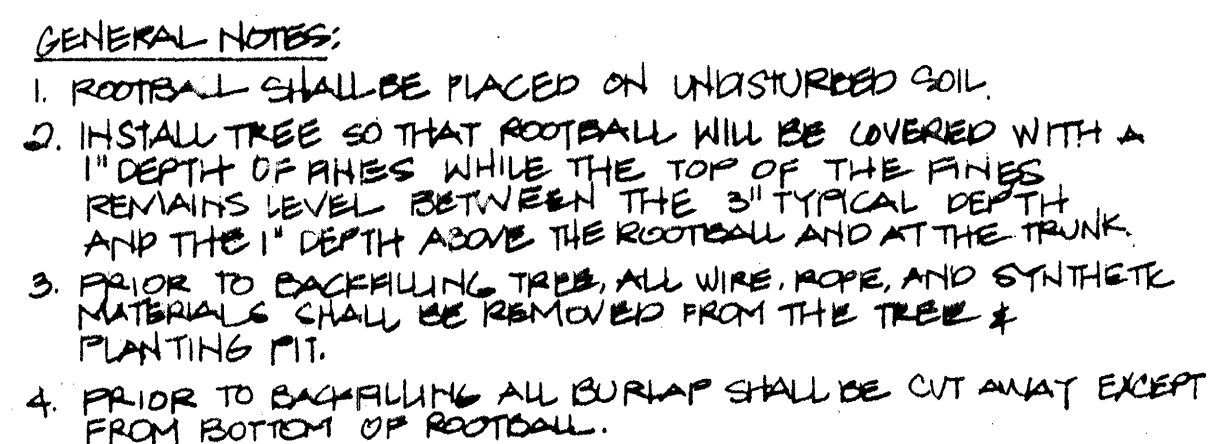 GENERAL NOTES:
1. ROOTBALL SHALL BE PLACED ON UNDISTURBED SOIL.
2. INSTALL TREE SO THAT ROOTBALL WILL BE COVERED WITH A
1" DEPTH OF FINES WHILE THE TOP OF THE FINES
REMAINS LEVEL BETWEEN THE 3" TYPICAL DEPTH
AND THE 1" DEPTH ABOVE THE ROOTBALL AND AT THE TRUNK.
3. PRIOR TO BACKFILLING TREE, ALL WIRE, ROPE, AND SYNTHETIC
MATERIALS SHALL BE REMOVED FROM THE TREE &
PLANTING PIT.
4. PRIOR TO BACKFILLING ALL BURLAP SHALL BE CUT AWAY EXCEPT
FROM BOTTOM OF ROOTBALL.